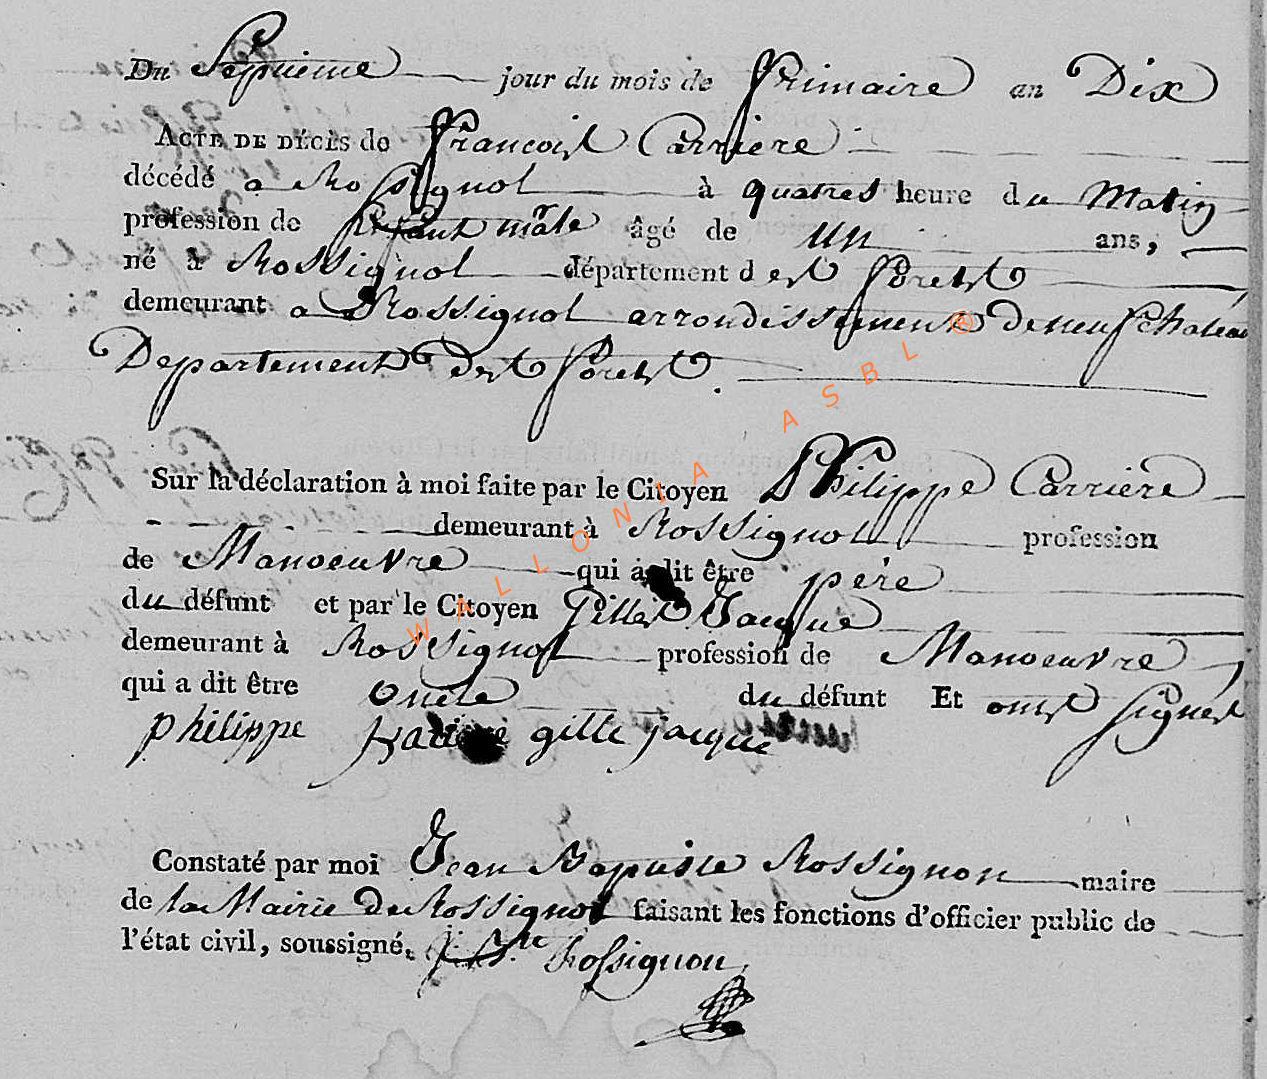 Du Septieme jour du mois de frimaire an Dix
ACTE DE DÉCÈS de francoist Carriere
décédé a Rossignol à quatres heure du Matin
profession de Enfant mâle âgé de un ans,
né à Rossignol département dest forest
demeurant a Rossignol arrondissement de neufchateau
Departement dest forest.
Sur la déclaration à moi faite par le Citoyen Philippe Carriere
demeurant à Rossignol profession
de Manoeuvre qui a dit être père
du défunt et par le Citoyen Gillest Jacque
demeurant à Rossignol profession de Manoeuvre
qui a dit être oncle du défunt Et onst signest
philippe gille jacque
Constaté par moi Jean Baptiste Rossignon maire
de la Mairie De Rossignol faisant les fonctions d'officier public de
l'état civil, soussigné. j. Bte Rossignon
WALLONIA ASBL ©